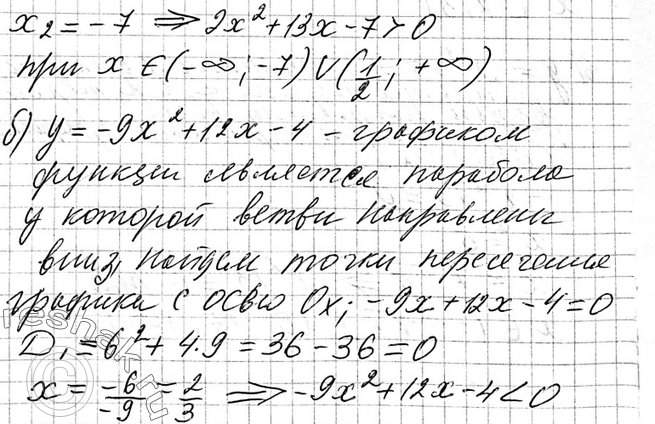 x₂ = -7 ⇒ 2x² + 13x - 7 > 0
при x ∈ (-∞; -7) ∪ (1/2; +∞)
б) y = -9x² + 12x - 4 - графиком
функции является парабола
у которой ветви направлены
вниз, найдем точки пересечения
графика с осью Ox; -9x + 12x - 4 = 0
D₁ = 6² + 4·9 = 36 - 36 = 0
x = -6/-9 = 2/3 ⇒ -9x² + 12x - 4 < 0
reshak.ru